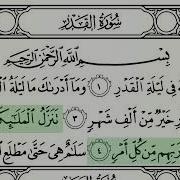 سُورَةُ الْقَدْرِ
بِسْمِ اللَّهِ الرَّحْمَٰنِ الرَّحِيمِ
فِي لَيْلَةِ الْقَدْرِ ١ وَمَا أَدْرَاكَ مَا لَيْلَةُ
خَيْرٌ مِنْ أَلْفِ شَهْرٍ ٣ تَنَزَّلُ الْمَلَائِكَةُ
رَبِّهِم مِّن كُلِّ أَمْرٍ ٤ سَلَامٌ هِيَ حَتَّىٰ مَطْلَعِ